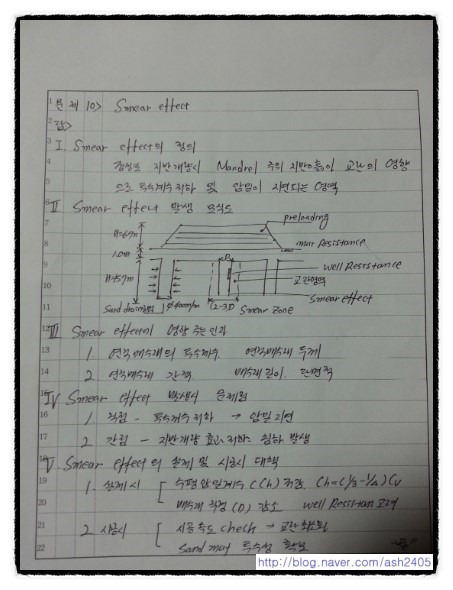 문제 10> Smear effect
답>
I. Smear effect의 정의
점성토 지반개량시 Mandrel 주위 지반이 교란의 영향
으로 투수계수저하 및 압밀이 지연되는 영역
II Smear effect 발생 모식도
preloading
H=6~7m
mat Resistance
1.0m
D
well Resistance
H=57m
교란영역
Smear effect
Sand drain
(2~3)D
Smear Zone
III Smear effect에 영향 주는 인자
1. 연직배수재의 투수계수, 연직배수재 두께
2. 연직배수재 간격 배수재 길이, 단면적
IV Smear effect 발생시 문제점
1. 직접 - 투수계수저하 → 압밀지연
2. 간접 - 지반개량 효과 저하, 침하 발생
V Smear effect의 설계 및 시공시 대책
1. 설계시 수평압밀계수 (Ch) 저감, Ch=(1/3~1/4)Cv
배수재 직경 (D) 감소 well Resistan 고려
2. 시공시 시공속도 check → 교란 최소화
Sand mat 투수성 확보
http://blog.naver.com/ash2405